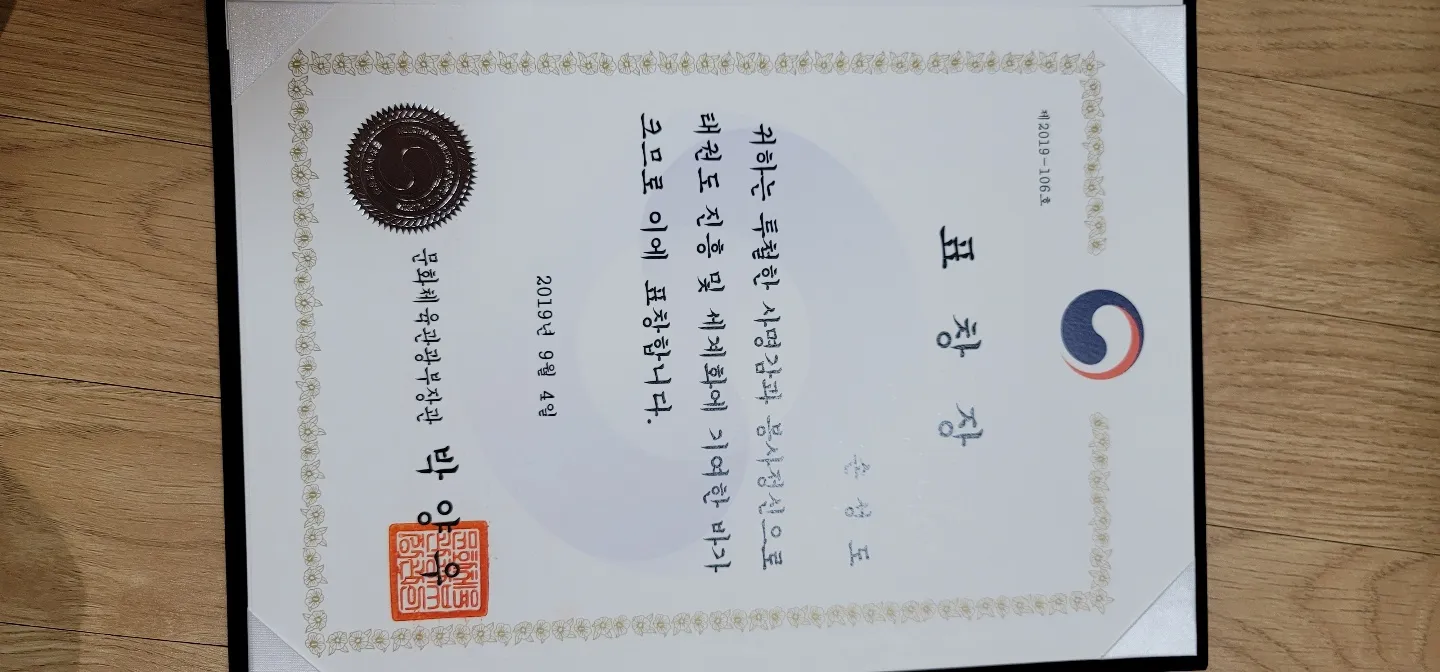 제2019-106호
표 창 장
손 성 도
귀하는 투철한 사명감과 봉사정신으로
태권도 진흥 및 세계화에 기여한 바가
크므로 이에 표창합니다.
2019년 9월 4일
문화체육관광부장관 박 양 우